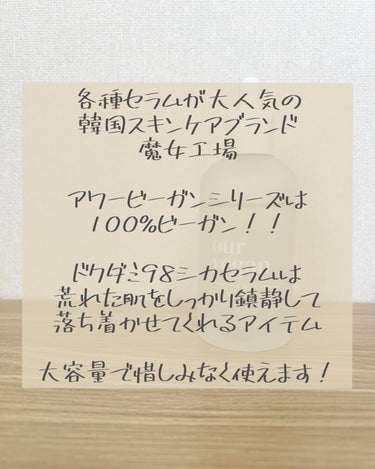 各種セラムが大人気の
韓国スキンケアブランド
魔女工場
アワービーガンシリーズは
100%ビーガン!!
ドクダミ98シカセラムは
荒れた肌をしっかり鎮静して
落ち着かせてくれるアイテム
大容量で惜しみなく使えます!
our
vegan